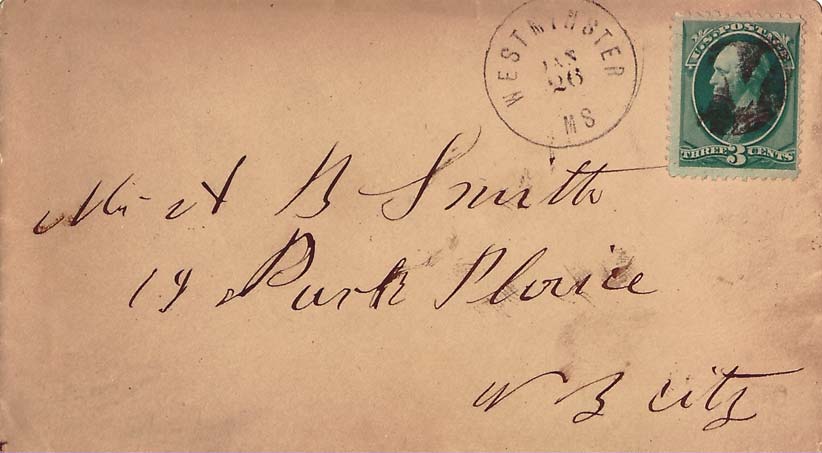 WESTMINSTER
JAN
26
MS
U.S. POSTAGE
THREE 3 CENTS
Mr A B Smith
19 Park Place
N Y City